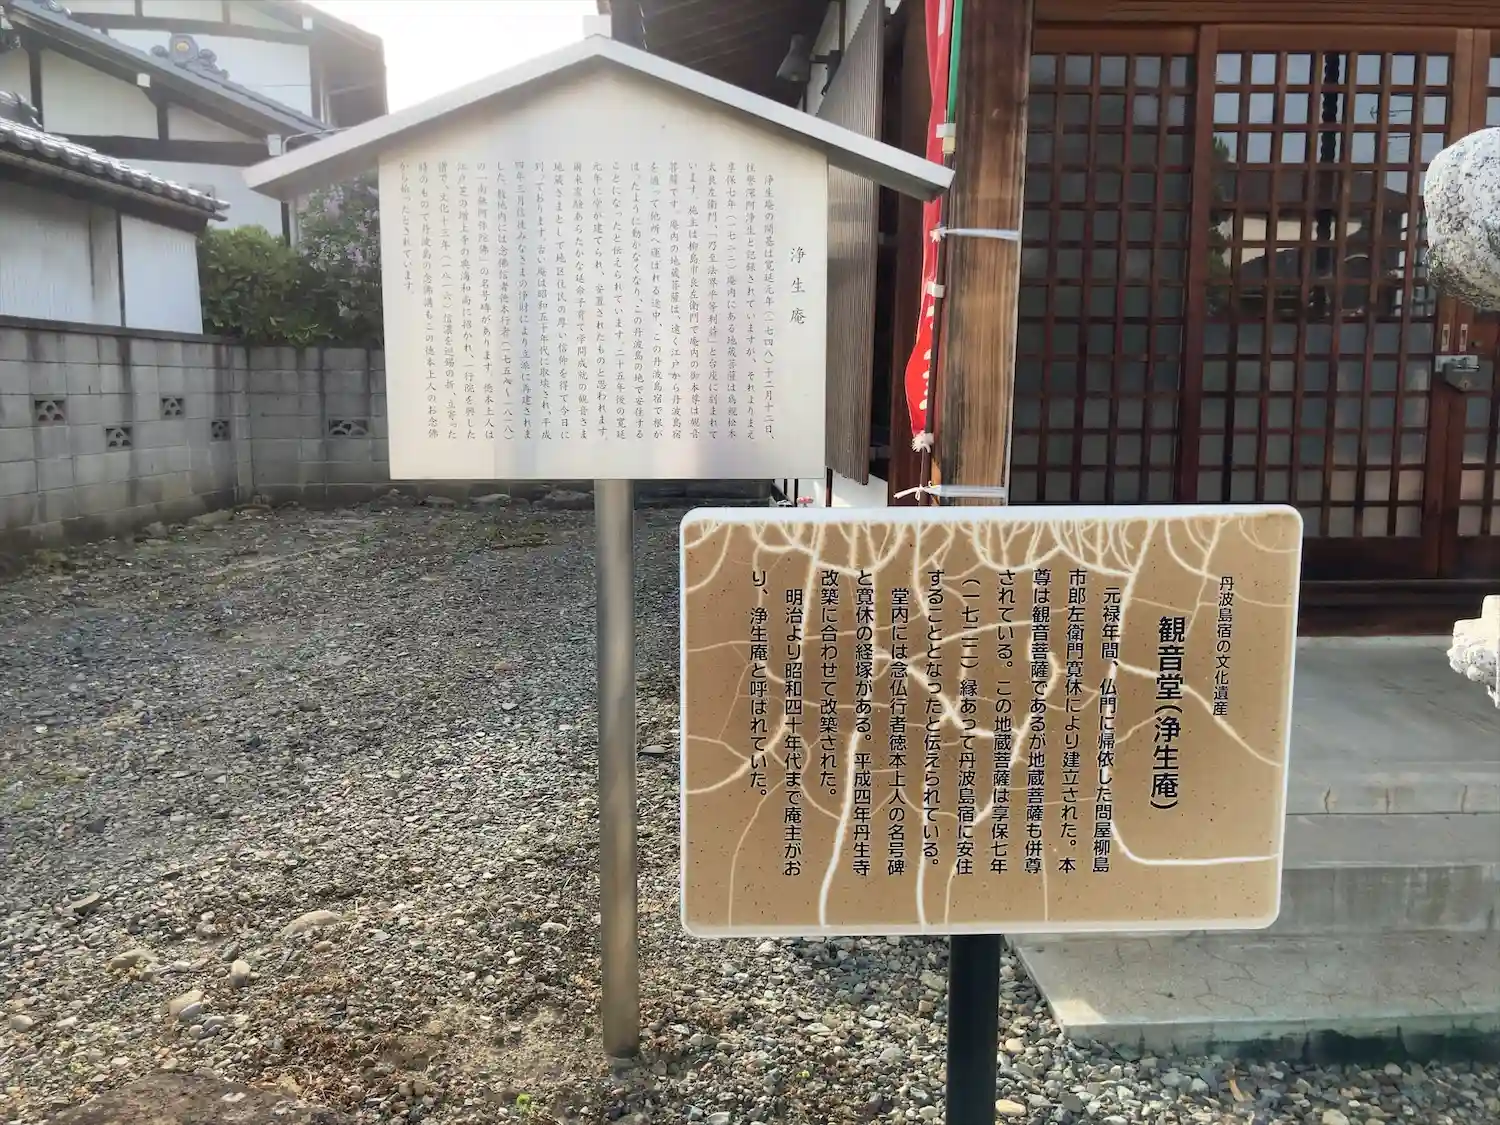 浄生庵
浄生庵の開基は寛延元年(一七四八)十二月十二日、
住誉深阿浄生と記録されていますが、それよりまえ
享保七年(一七二二)庵内にある地蔵菩薩は為親松本
太良左衛門、「乃至法界平等利益」と台座に刻まれて
います。施主は柳島市良左衛門で庵内の御本尊は観音
菩薩です。庵内の地蔵菩薩は、遠く江戸から丹波島宿
を通って他所へ運ばれる途中、この丹波島宿で根が
はったように動かなくなり、この丹波島の地で安住する
ことになったと伝えられています。二十五年後の寛延
元年に堂が建てられ、安置されたものと思われます。
爾来霊験あらたかな延命子育て学問成就の観音さま
地蔵さまとして地区住民の厚い信仰を得て今日に
到っております。古い庵は昭和五十年代に取壊され、平成
四年三月信徒みなさまの浄財により立派に再建されま
した。敷地内には念佛信者徳本行者(一七五八〜一八一八)
の「南無阿弥陀佛」の名号碑があります。徳本上人は
江戸芝の増上寺の典海和尚に招かれ、一行院を興した
僧で、文化十三年(一八一六)信濃を巡錫の折、立寄った
時のもので丹波島の念佛講もこの徳本上人のお念佛
から始ったとされています。
丹波島宿の文化遺産
観音堂(浄生庵)
元禄年間、仏門に帰依した問屋柳島
市郎左衛門寛休により建立された。本
尊は観音菩薩であるが地蔵菩薩も併尊
されている。この地蔵菩薩は享保七年
(一七二二)縁あって丹波島宿に安住
することとなったと伝えられている。
堂内には念仏行者徳本上人の名号碑
と寛休の経塚がある。平成四年丹生寺
改築に合わせて改築された。
明治より昭和四十年代まで庵主がお
り、浄生庵と呼ばれていた。